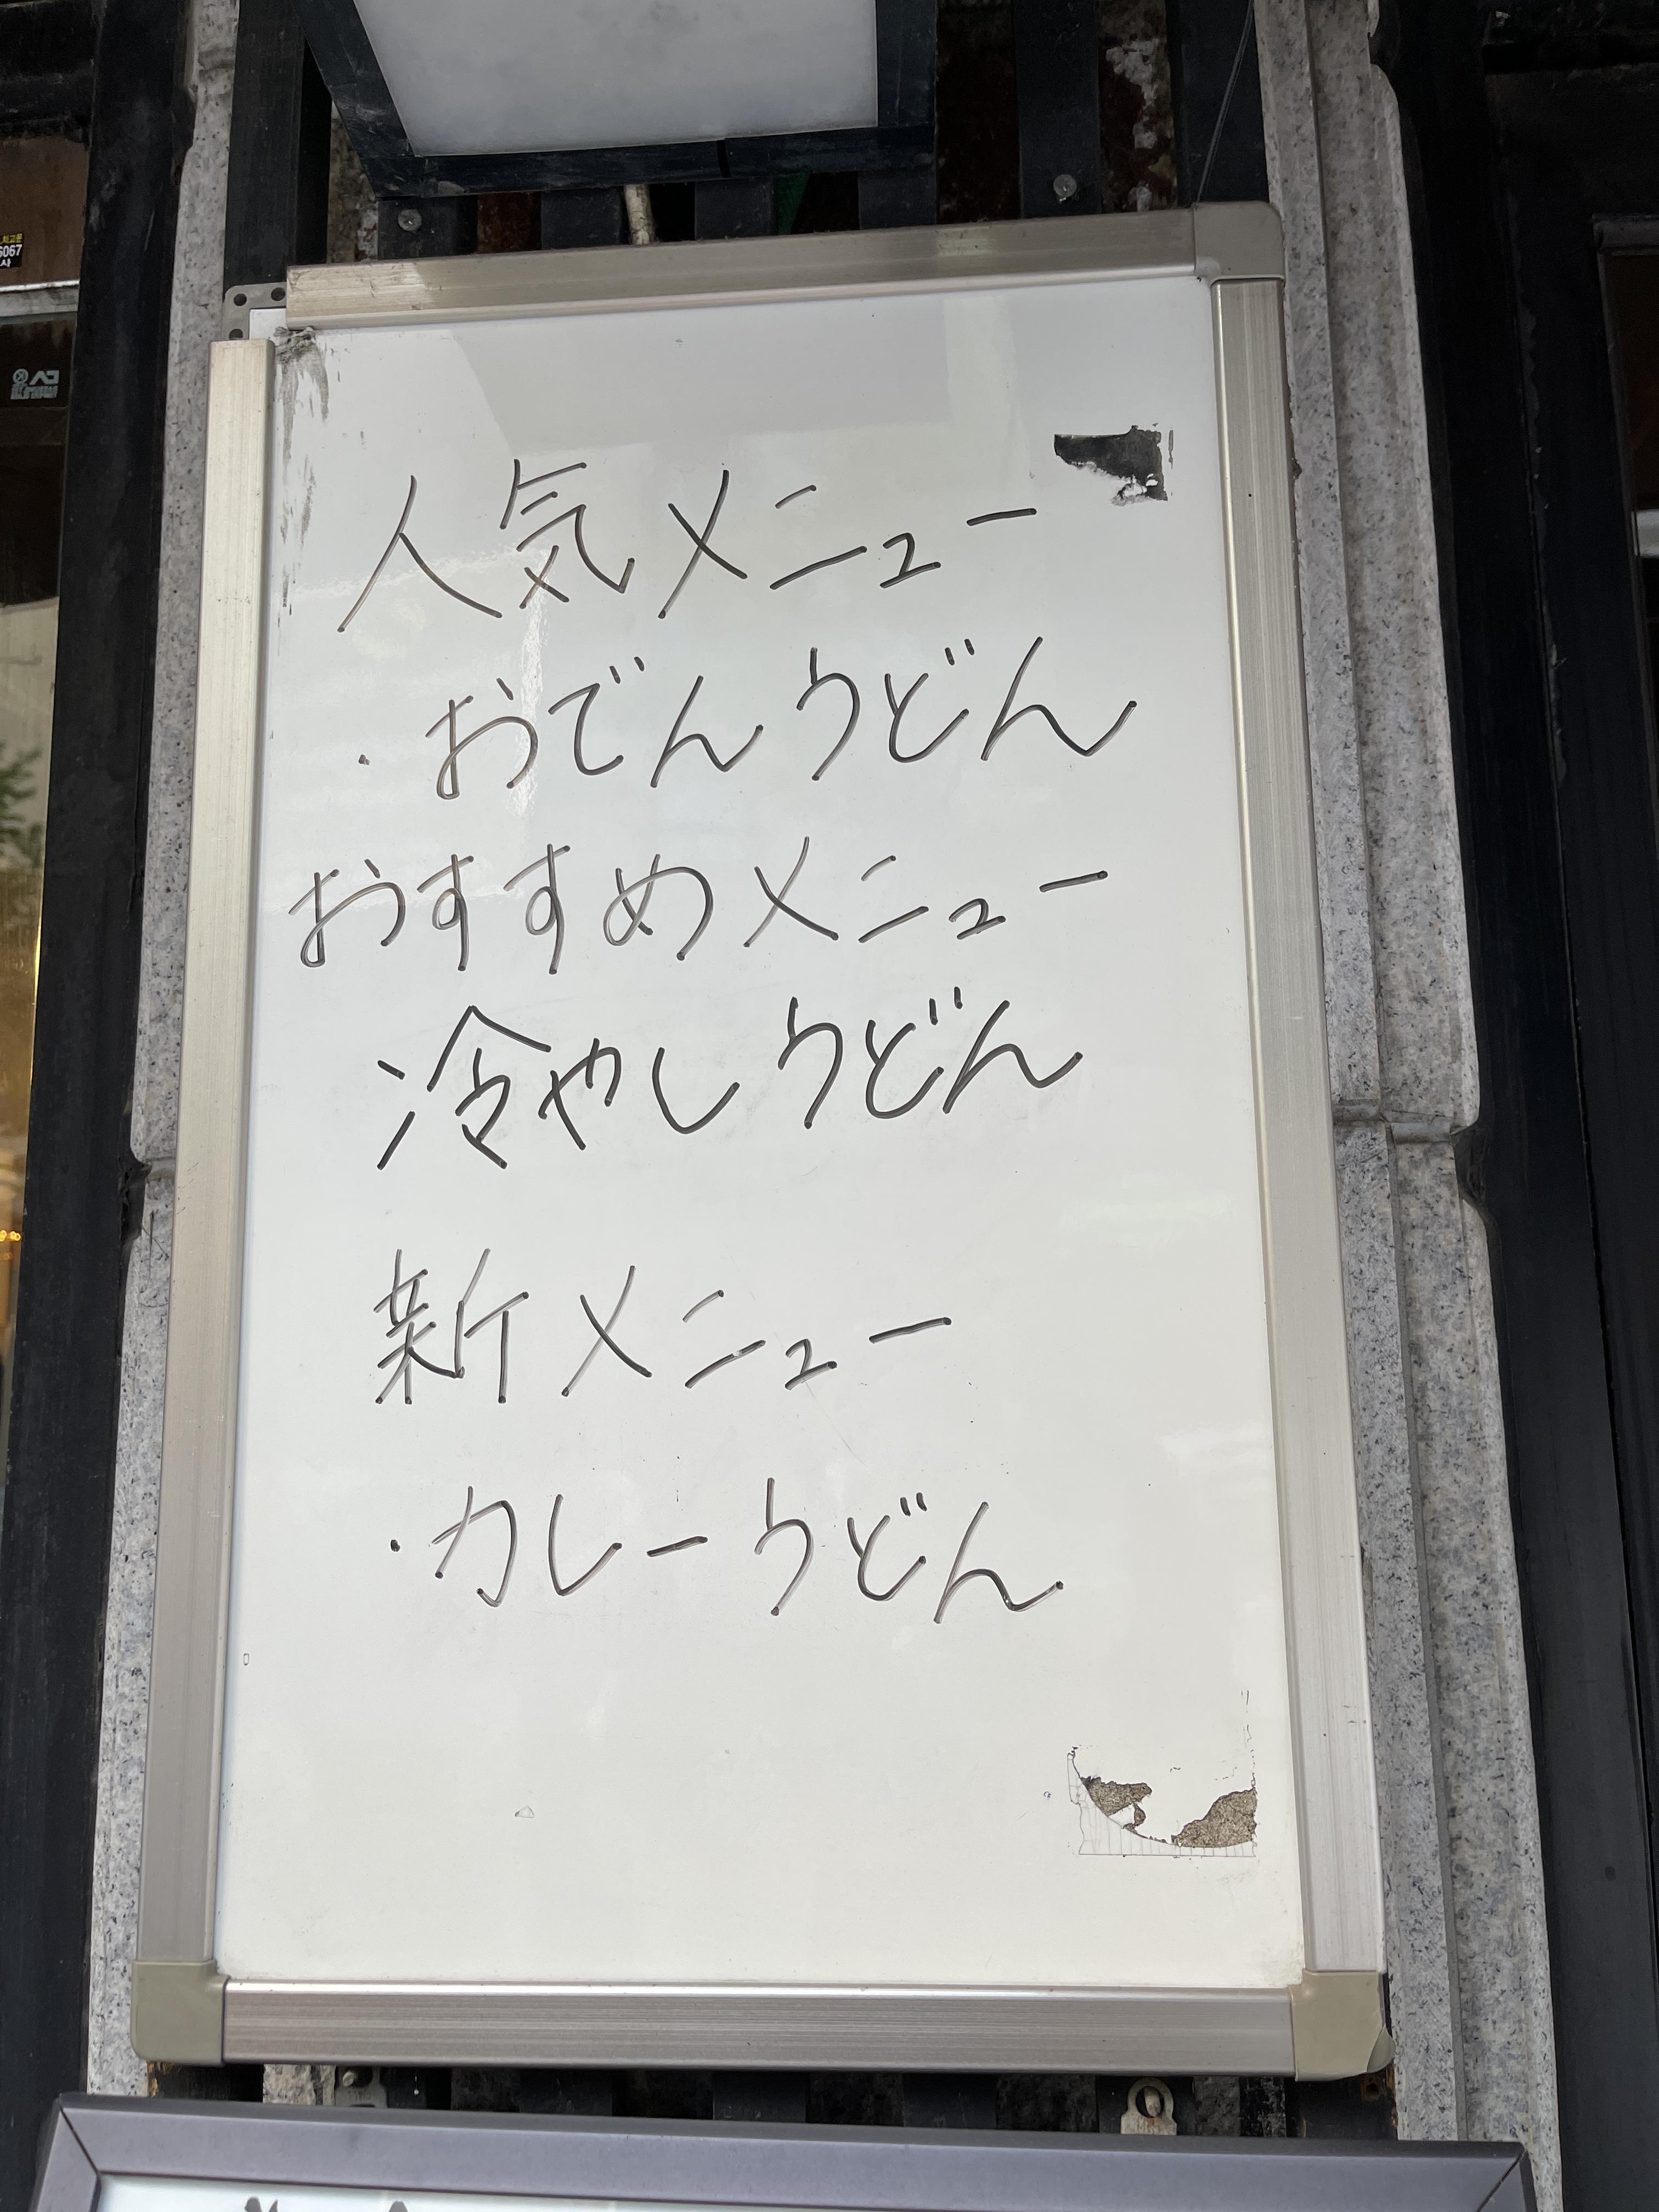 人気メニュー
・おでんうどん
おすすめメニュー
冷やしうどん
新メニュー
・カレーうどん
6067